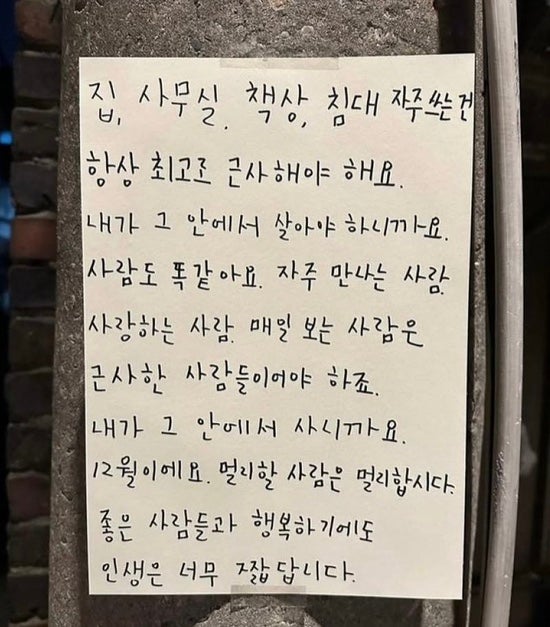 집, 사무실, 책상, 침대 자주 쓰는 건
항상 최고로 근사해야 해요.
내가 그 안에서 살아야 하니까요.
사람도 똑같아요. 자주 만나는 사람.
사랑하는 사람. 매일 보는 사람은
근사한 사람들이어야 하죠.
내가 그 안에서 사니까요.
12월이에요. 멀리할 사람은 멀리합시다.
좋은 사람들과 행복하기에도
인생은 너무 짧답니다.